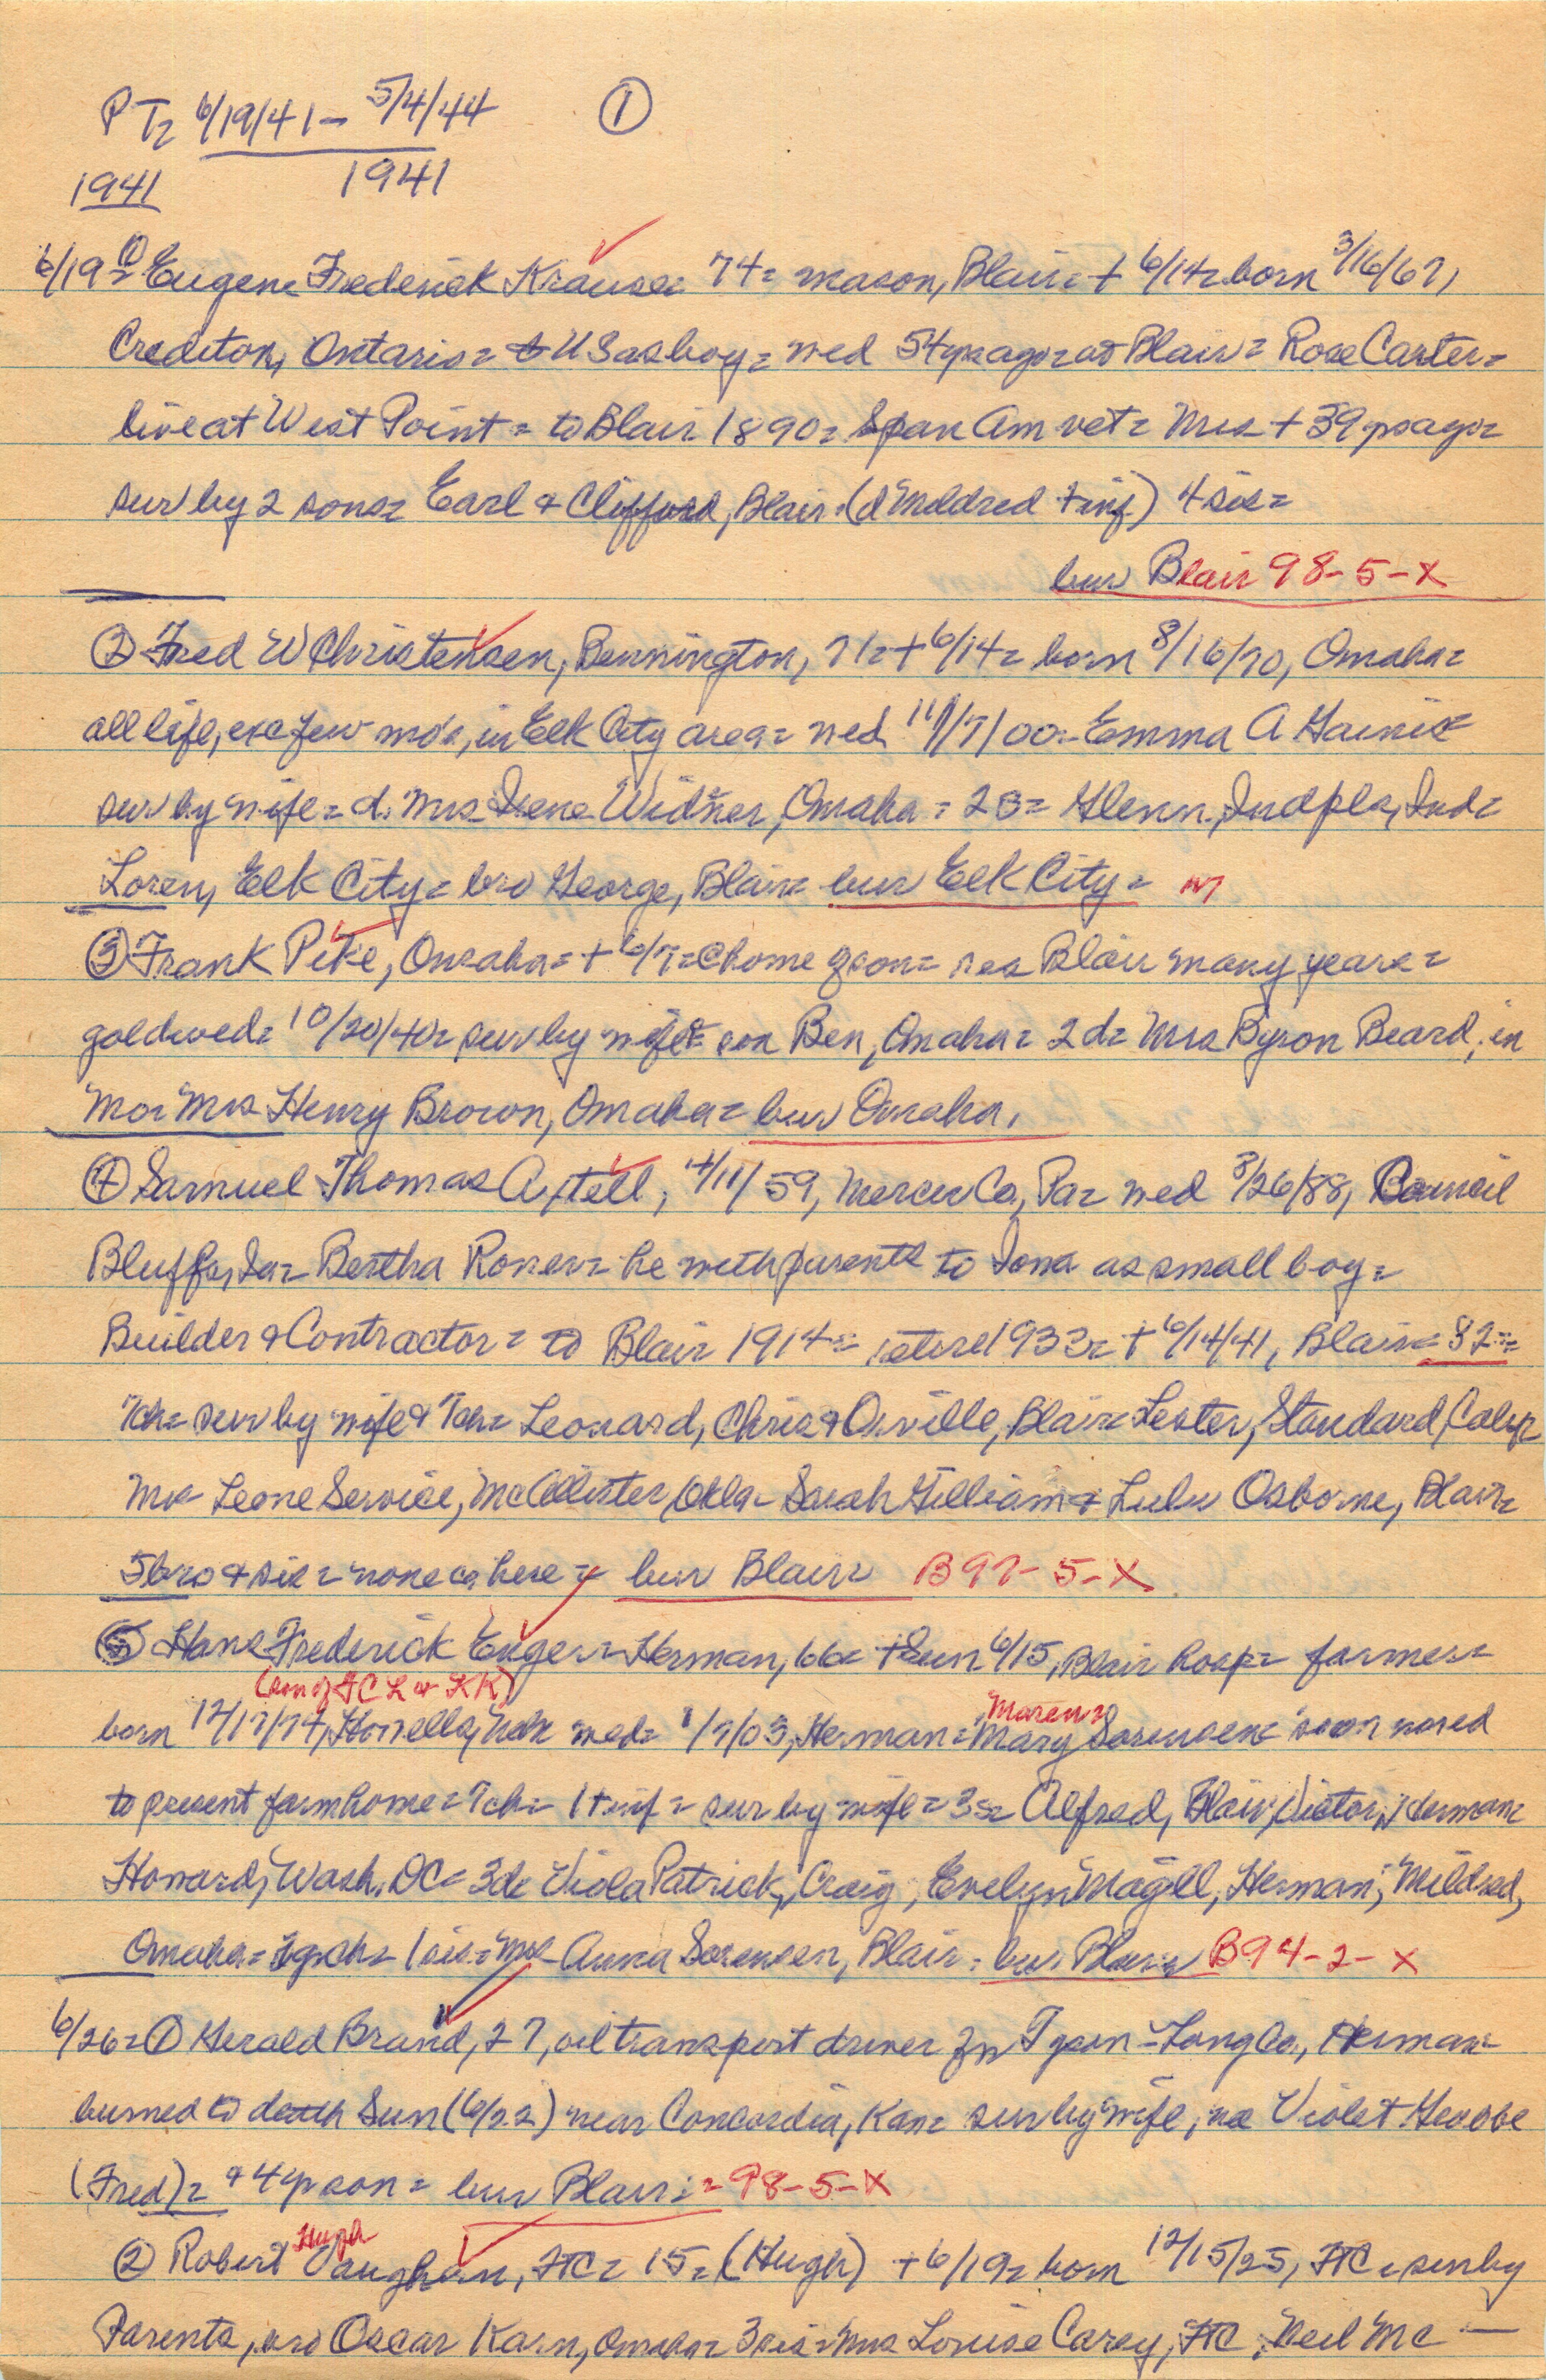 PT= 6/19/41 - 5/4/44 ①
1941 1941
6/19= ① Eugene Frederick Krause= 74= mason, Blair= + 6/14= born 3/16/67,
Crediton, Ontario= to US as boy= wed 54 yrs ago= at Blair= Rose Carter=
live at West Point= to Blair 1890= Span Am vet= Mrs + 39 yrs ago=
sur by 2 sons= Earl & Clifford, Blair. (d Mildred + inf) 4 sis=
bur Blair 98-5-X
② Fred W Christensen, Bennington, 71= + 6/14= born 8/16/70, Omaha=
all life, exc few mo's, in Elk City area= wed 11/7/00= Emma A
sur by wife= d. Mrs Irene Widner, Omaha= 2s= Glenn, Indpls, Ind=
Loren, Elk City= bro George, Blair= bur Elk City=
③ Frank Pike, Omaha= + 6/7= @ home of son= res Blair many years=
gold wed= 10/20/40= sur by wife= son Ben, Omaha= 2d= Mrs Byron Beard, in
Mo= Mrs Henry Brown, Omaha= bur Omaha.
④ Samuel Thomas Axtell, 4/11/59, Mercer Co, Pa= wed 8/26/88, Council
Bluffs, Ia= Bertha he with parents to Iowa as small boy=
Builder & Contractor= to Blair 1914= retired 1933= + 6/14/41, Blair= 82=
7ch= sur by wife & 7ch= Leonard, Chris & Orville, Blair= Lester, Standard, Calif=
Mrs Leone Service, McAllister, Okla= Sarah Gilliam & Lulu Osborne, Blair=
5 bro & sis= none here= bur Blair= B97-5-X
⑤ Hans Frederick Enger= Herman, 66= + Sun 6/15, Blair hosp= farmer=
(son of HCL & KK) Maren=
born 12/17/74, Nebr= wed= 1/7/03, Herman= Mary Sorensen= soon moved
to present farm home= 7ch= 1 + inf= sur by wife= 3s= Alfred, Blair, Victor, Herman=
Howard, Wash, DC= 3d= Viola Patrick, Craig, Evelyn Magill, Herman, Mildred,
Omaha= gch= 1 sis= Mrs Anna Sorensen, Blair= bur Blair= B94-2-X
6/26= ① Gerald Brand, 27, oil transport driver for Tyson-Long Co., Herman=
burned to death Sun (6/22) near Concordia, Kan= sur by wife, nee Violet Grobe
(Fred)= & 4 yr son= bur Blair= = 98-5-X
Hugh
② Robert Vaughan, FTC= 15= (Hugh) + 6/19= born 12/15/25, FTC= sur by
Parents, bro Oscar Karn, Omaha= 3 sis= Mrs Louise Carey, FTC, Neil Mc —